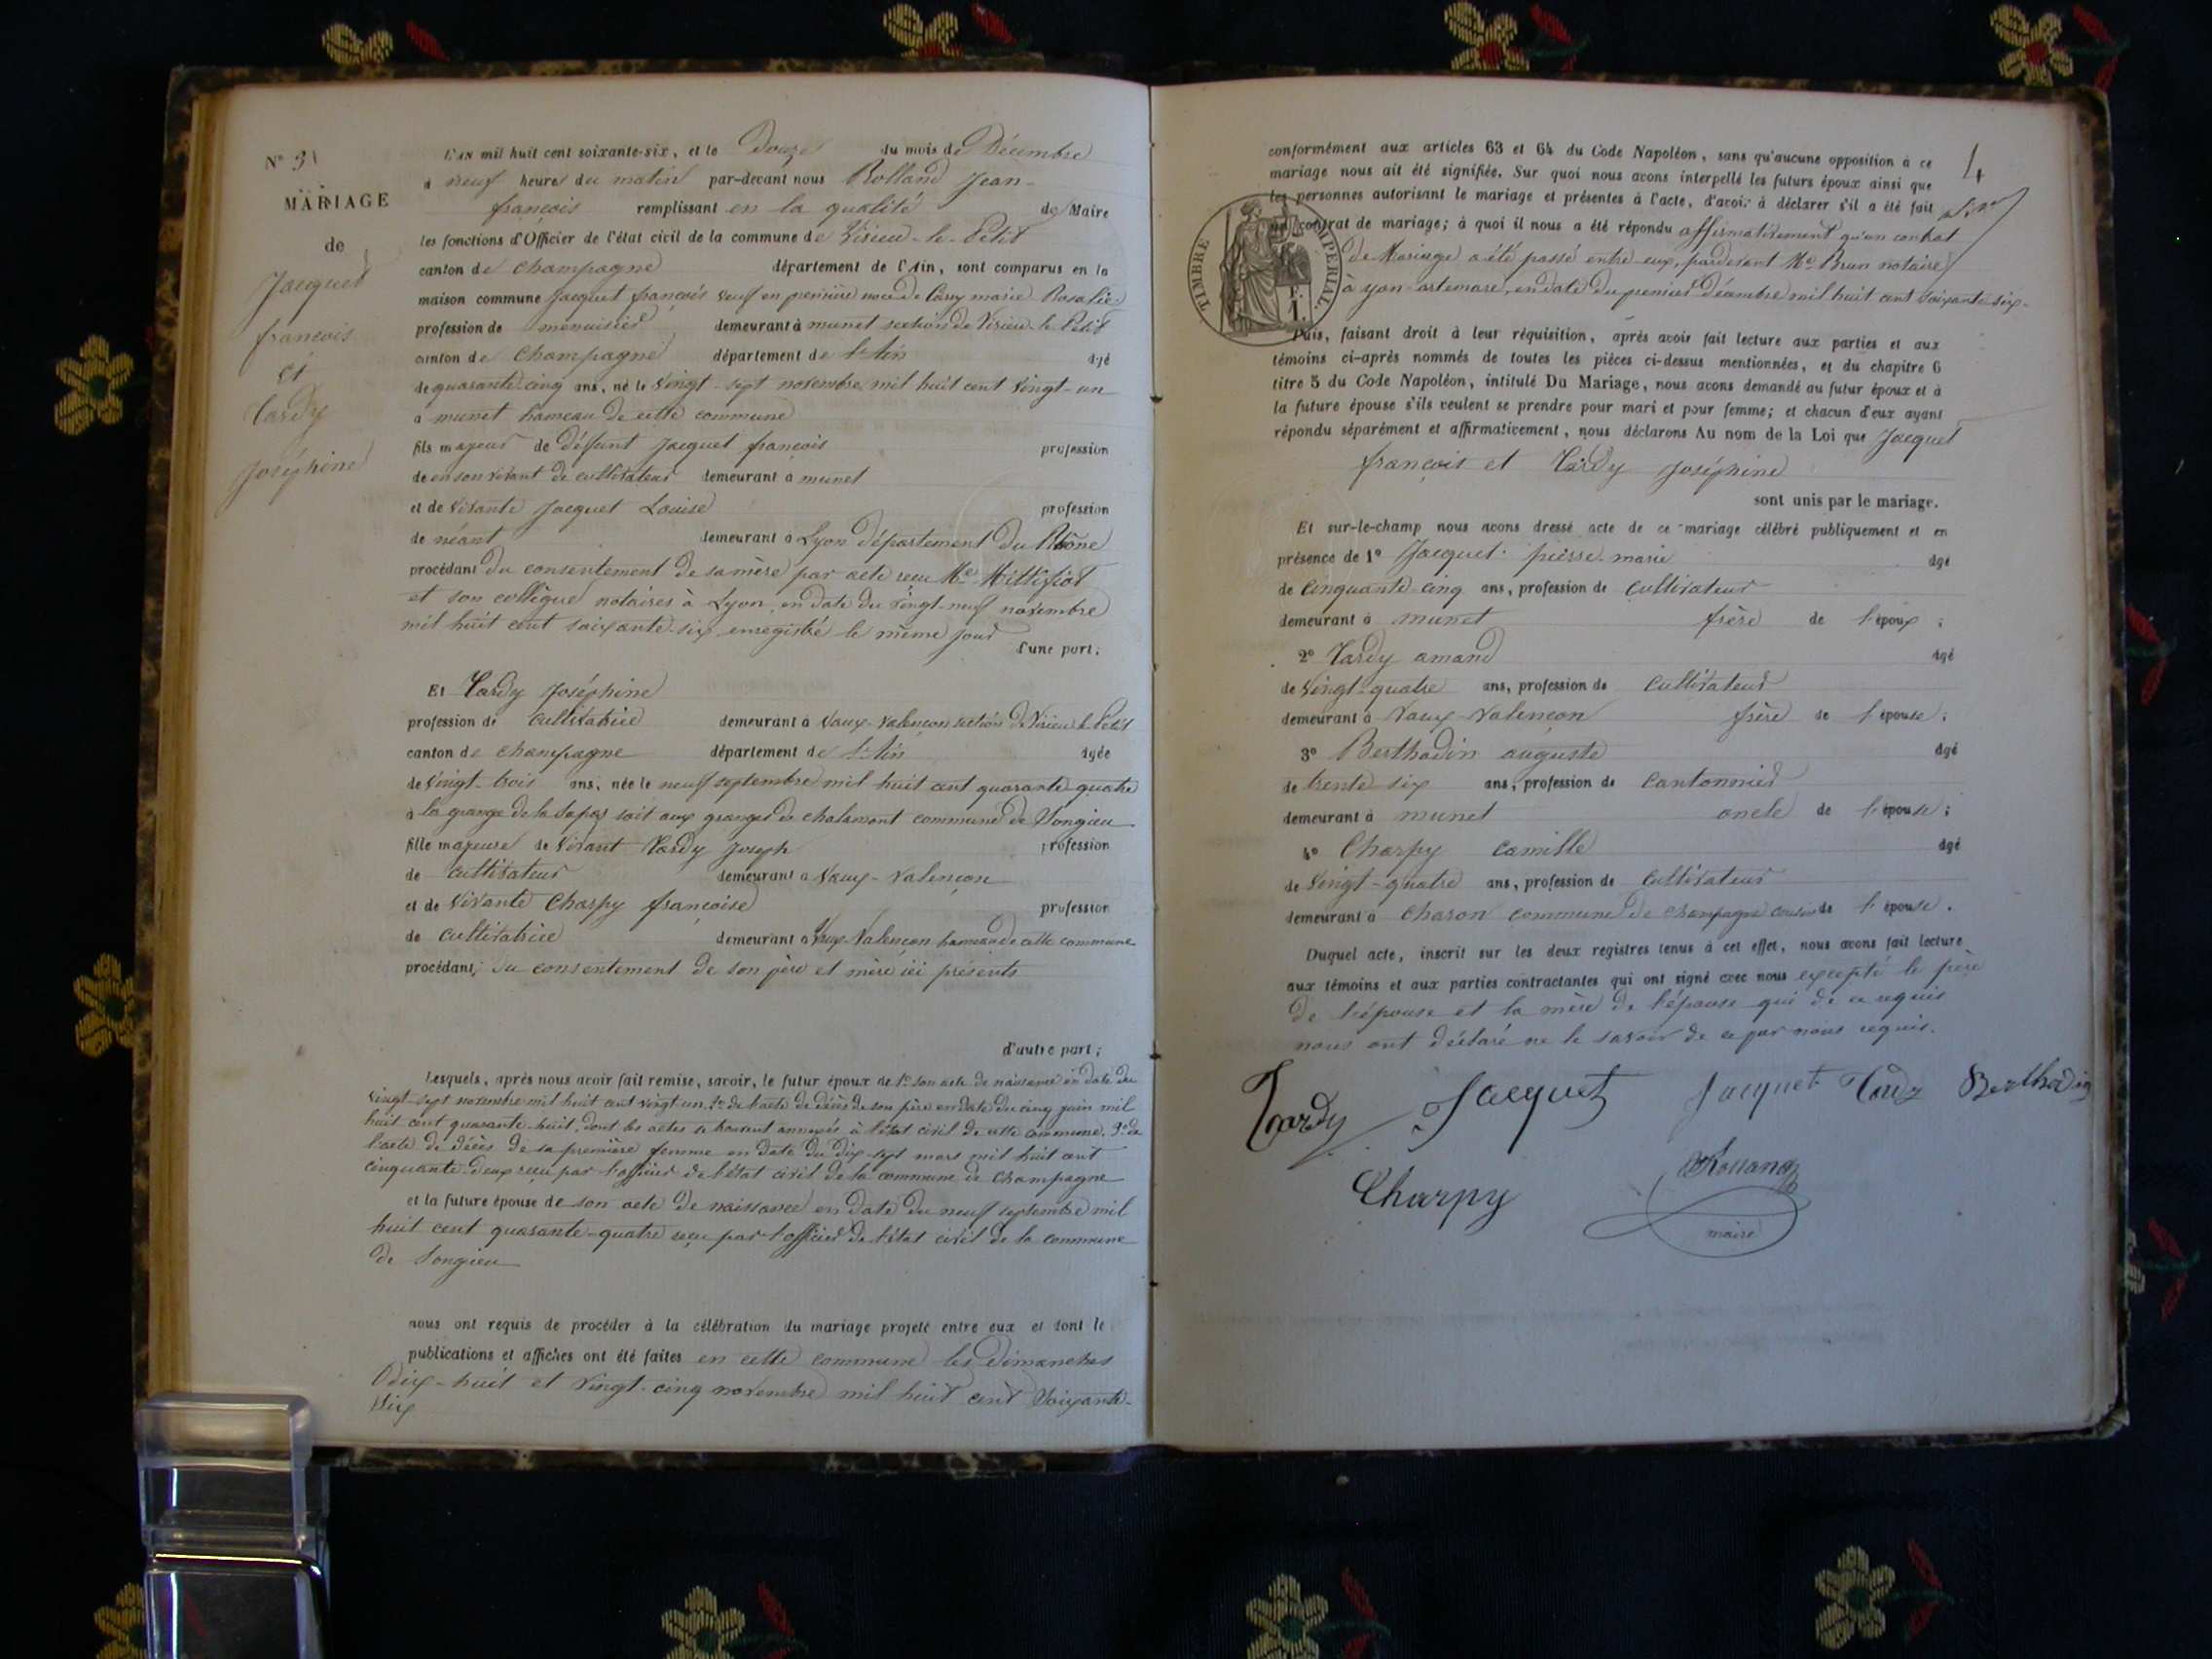 N° 31
MARIAGE
de
Jacquet
françois
et
Tardy
Joséphine
L'AN mil huit cent soixante-six, et le Douze du mois de Décembre
à neuf heures du matin par-devant nous Rolland Jean-
françois remplissant en la qualité de Maire
les fonctions d'Officier de l'état civil de la commune de Virieu-le-Petit
canton de Champagne département de l'Ain, sont comparus en la
maison commune Jacquet françois veuf en première noce de Carry marie Rosalie
profession de menuisier demeurant à munet section de Virieu-le-Petit
canton de Champagne département de l'Ain âgé
de quarante-cinq ans, né le vingt-sept novembre mil huit cent vingt-un
à munet hameau de cette commune
fils majeur de deffunt Jacquet françois profession
de en son vivant de cultivateur demeurant à munet
et de vivante Jacquet Louise profession
de néant demeurant à Lyon département du Rhône
procédant du consentement de sa mère par acte reçu Me
et son collègue notaires à Lyon, en date du vingt-neuf novembre
mil huit cent soixante-six enregistré le même jour
d'une part;
Et Tardy Joséphine
profession de cultivatrice demeurant à Vaux-Valençon section de Virieu-le-Petit
canton de champagne département de l'Ain âgée
de vingt-trois ans, née le neuf septembre mil huit cent quarante-quatre
à la grange de la soit aux granges de chalamont commune de Songieu
fille majeure de vivant Tardy Joseph profession
de cultivateur demeurant à Vaux-Valençon
et de vivante Charpy françoise profession
de cultivatrice demeurant à Vaux-Valençon hameau de cette commune
procédant; du consentement de son père et mère ici présents
d'autre part;
Lesquels, après nous avoir fait remise, savoir, le futur époux de 1° son acte de naissance en date du
vingt-sept novembre mil huit cent vingt-un, 2° de l'acte de décès de son père en date du cinq juin mil
huit cent quarante-huit, dont les actes se trouvent annexés à l'état civil de cette commune. 3° de
l'acte de décès de sa première femme en date du dix-sept mars mil huit cent
cinquante-deux reçu par l'officier de l'état civil de la commune de Champagne
et la future épouse de son acte de naissance en date du neuf septembre mil
huit cent quarante-quatre reçu par l'officier de l'état civil de la commune
de Songieu
nous ont requis de procéder à la célébration du mariage projeté entre eux et dont les
publications et affiches ont été faites en cette commune les Dimanches
Dix-huit et vingt-cinq novembre mil huit cent soixante-
six
4
conformément aux articles 63 et 64 du Code Napoléon, sans qu'aucune opposition à ce
mariage nous ait été signifiée. Sur quoi nous avons interpellé les futurs époux ainsi que
les personnes autorisant le mariage et présentes à l'acte, d'avoir à déclarer s'il a été fait
un contrat de mariage; à quoi il nous a été répondu affirmativement qu'un contrat
de Mariage a été passé entre eux, pardevant Me Brun notaire
à yon-artemare, en date du premier décembre mil huit cent soixante-six.
TIMBRE IMPÉRIAL
1 F.
Puis, faisant droit à leur réquisition, après avoir fait lecture aux parties et aux
témoins ci-après nommés de toutes les pièces ci-dessus mentionnées, et du chapitre 6
titre 5 du Code Napoléon, intitulé Du Mariage, nous avons demandé au futur époux et à
la future épouse s'ils veulent se prendre pour mari et pour femme; et chacun d'eux ayant
répondu séparément et affirmativement, nous déclarons Au nom de la Loi que Jacquet
françois et Tardy Joséphine
sont unis par le mariage.
Et sur-le-champ nous avons dressé acte de ce mariage célébré publiquement et en
présence de 1° Jacquet pierre-marie âgé
de cinquante-cinq ans, profession de cultivateur
demeurant à munet frère de l'époux;
2° Tardy amand âgé
de vingt-quatre ans, profession de cultivateur
demeurant à Vaux-Valençon frère de l'épouse;
3° Berthodin auguste âgé
de trente six ans, profession de cantonnier
demeurant à munet oncle de l'épouse;
4° Charpy Camille âgé
de vingt-quatre ans, profession de cultivateur
demeurant à Charon commune de champagne cousin de l'épouse.
Duquel acte, inscrit sur les deux registres tenus à cet effet, nous avons fait lecture
aux témoins et aux parties contractantes qui ont signé avec nous excepté le père
de l'épouse et la mère de l'épouse qui de ce requis
nous ont déclaré ne le savoir de ce par nous requis.
Tardy Jacquet Jacquet Tardy Berthodin
Charpy Rolland
maire